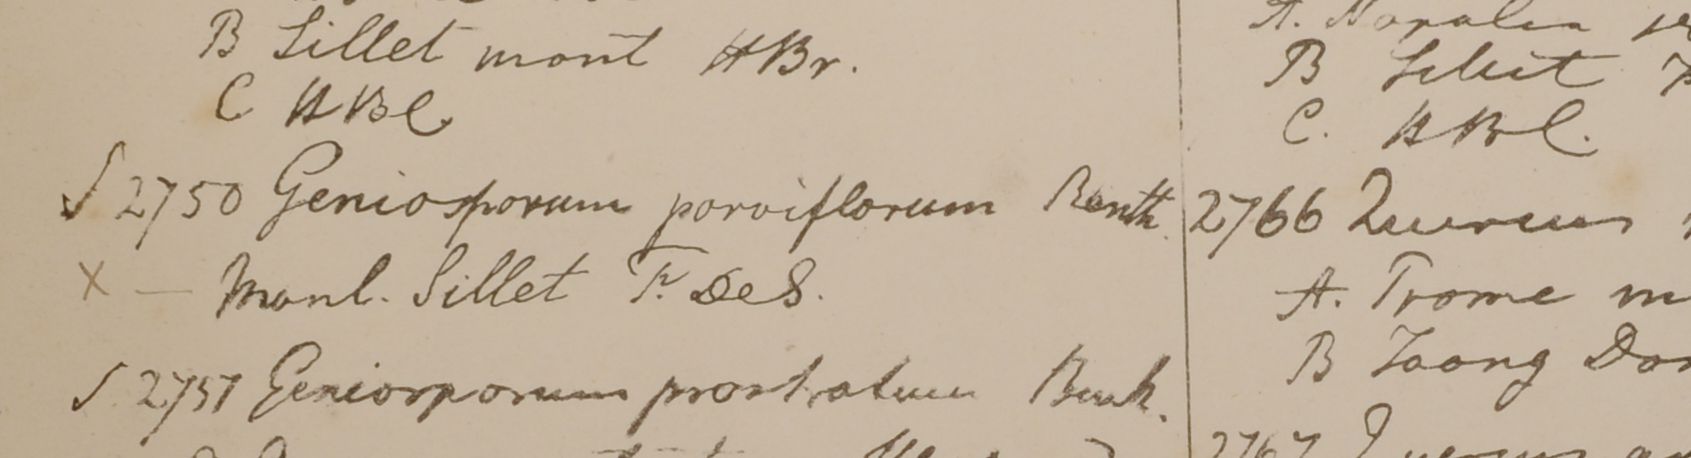 B Sillet mont HBr.
C HBC
√ 2750 Geniosporum parviflorum Benth.
X — Mont. Sillet F. DeS.
√ 2751 Geniosporum prostratum Benth.
A.
B
C. HBC.
2766 Quercus
A. Prome
B Taong Don
2767 Quercus